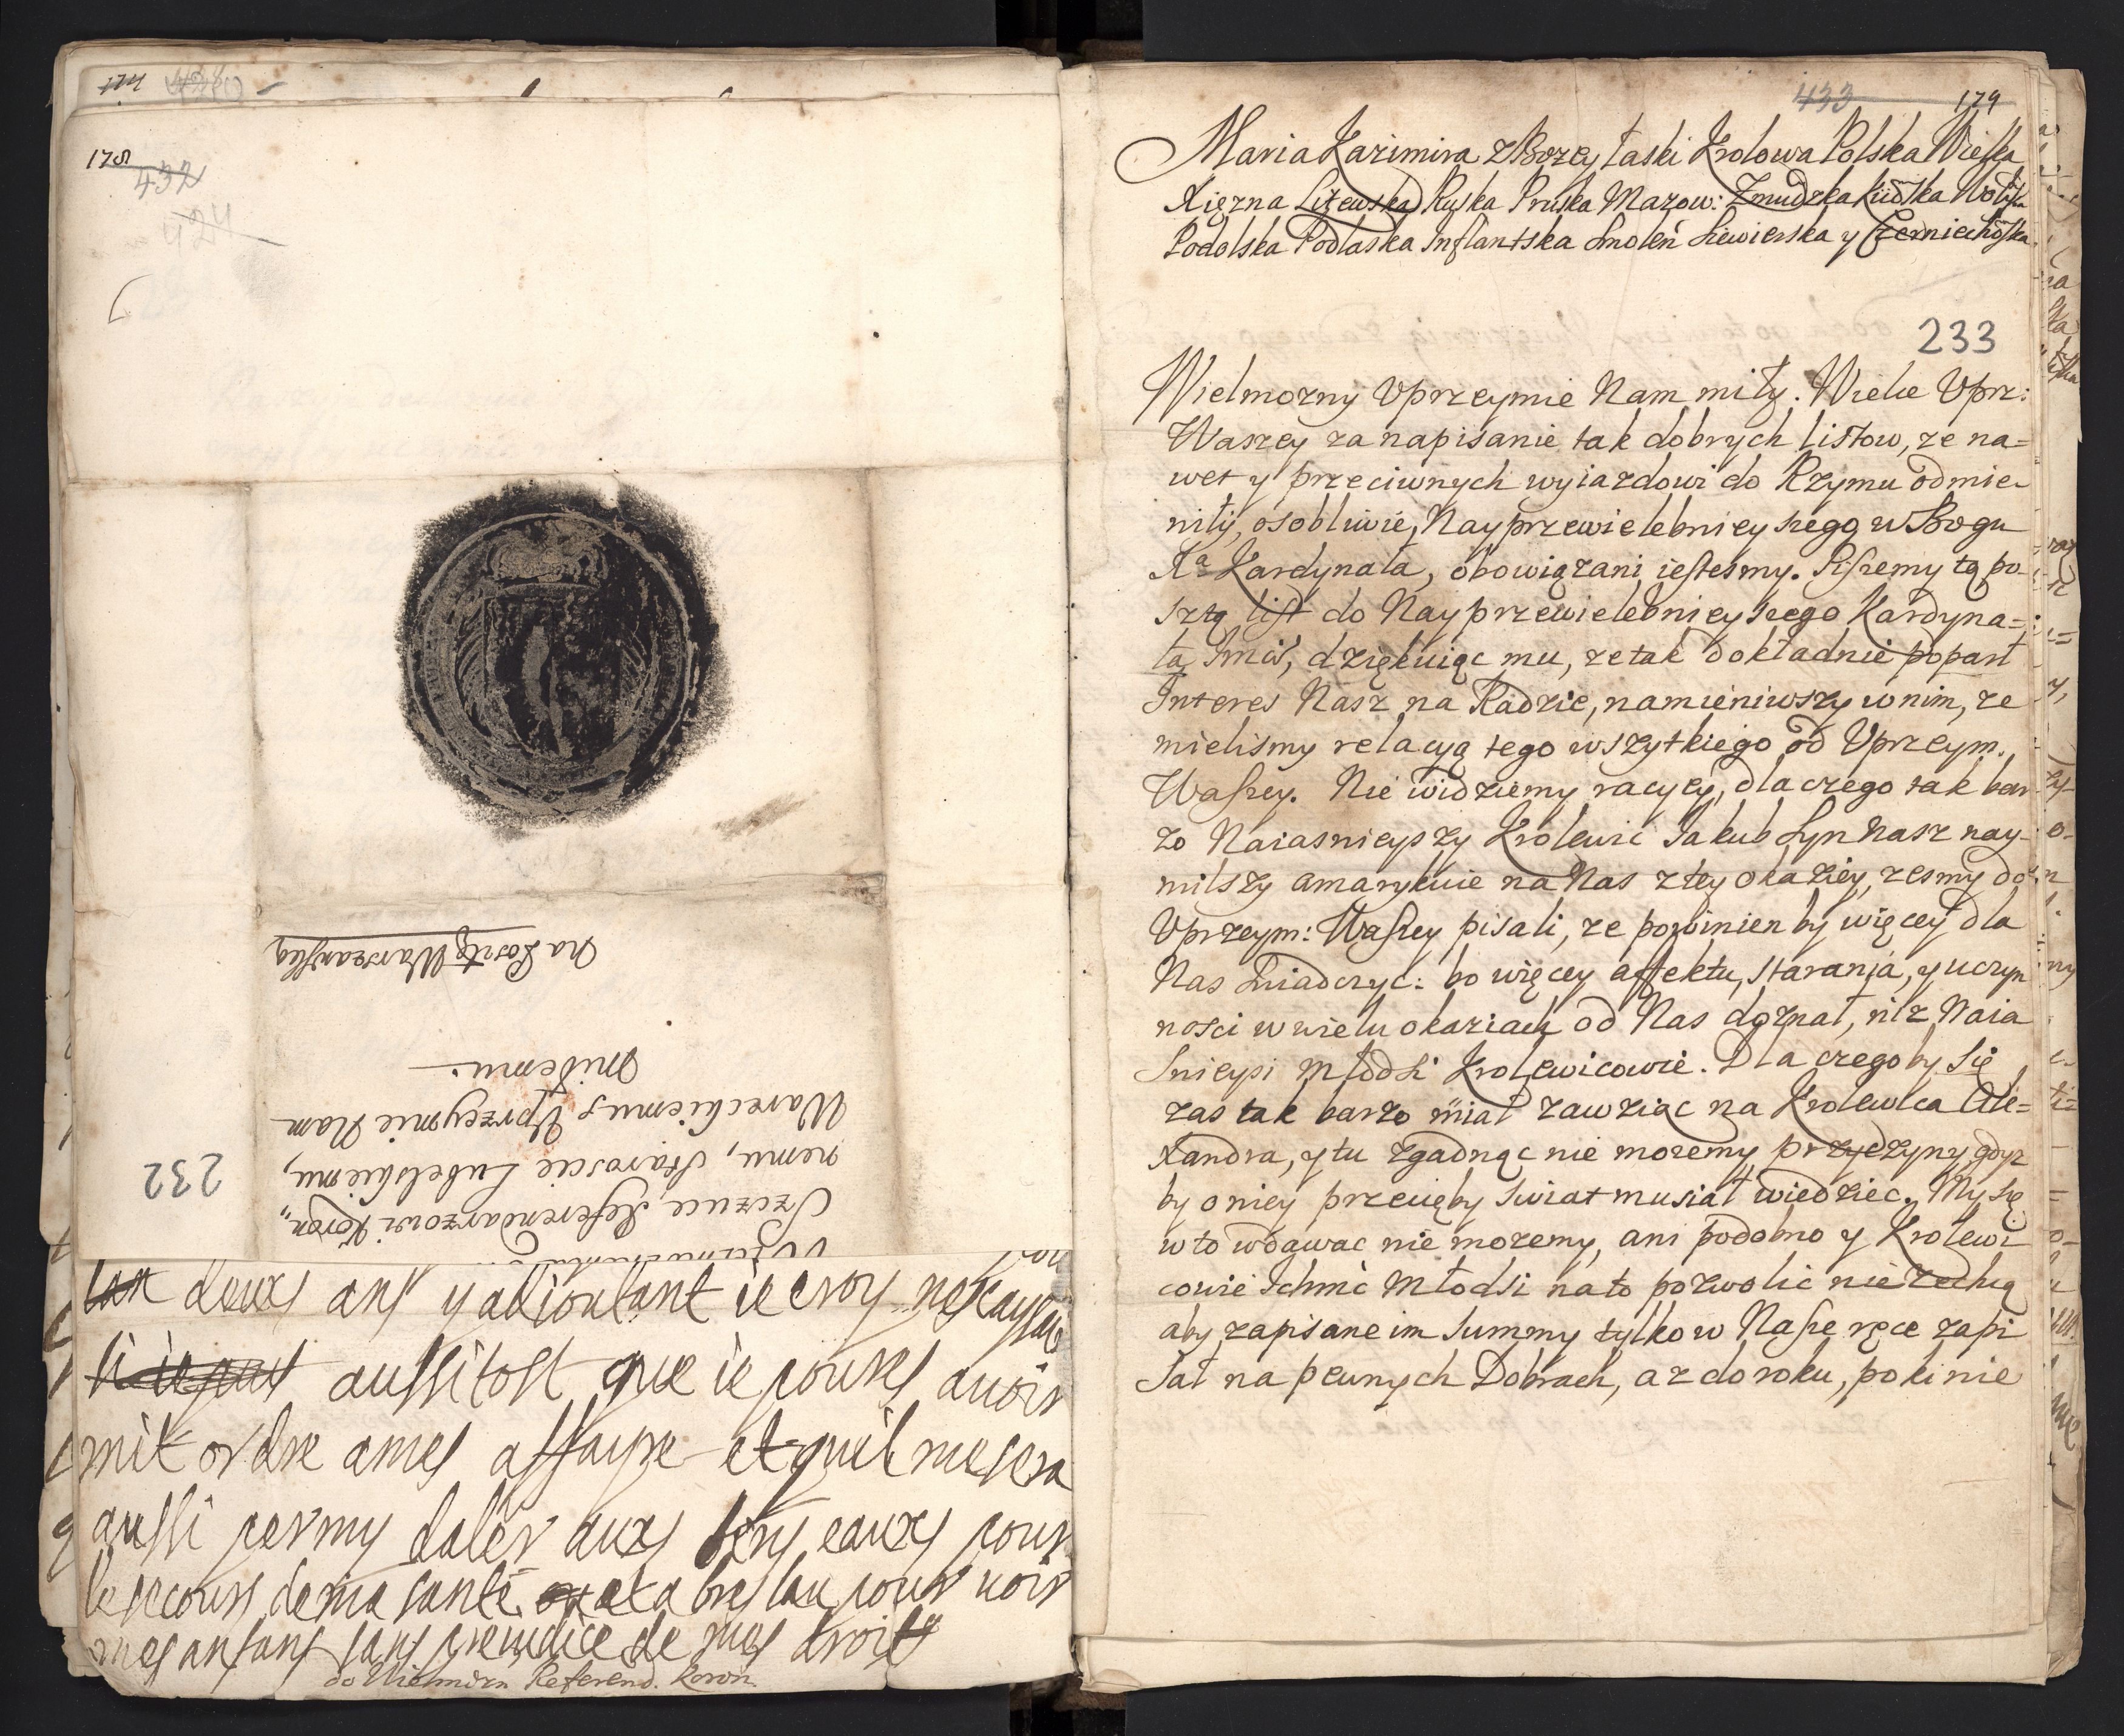 174
178
432
424
Na Posztę Warszawską
Szczuce, Referendarzowi Koron:
nemu, Staroscie Lubelskiemu,
Wareckiemu, Uprzeymie Nam
Miłemu.
232
deux ans y adioutant ie croy
aussitost que ie poures avoir
mit ordre a mes affayre et quil me sera
aussi permy daler aux eaux pour
le secours de ma santé et a breslau pour voir
mes anfans sans preiudice de mes droits
do Wielmozn Referend. Koron.
433
179
Maria Kazimira z Bozey Łaski Krolowa Polska Wielka
Xięzna Litewska Ruska Pruska Mazow: Zmudzka Kiiowska Wołyn
Podolska Podlaska Inflantska Smoleń Siewierska y Czerniechoska
233
Wielmozny Uprzeymie Nam miły. Wielce Uprz:
Waszey za napisanie tak dobrych listow, ze na=
wet y przeciwnych wyiazdowi do Rzymu odmie-
niły, osobliwie, Nayprzewielebnieyszego w Bogu
Xa Kardynała, obowiązani iestesmy. Piszemy tą po-
sztą list do Nayprzewielebnieyszego Kardyna=
łą Imci, dziękuiąc mu, ze tak dokładnie popart
Interes Nasz na Radzie, namieniwszy w nim, ze
mielismy relacyą tego wszytkiego od Uprzeym.
Waszey. Nie widziemy racyey, dla czego tak bar
zo Naiasnieyszy Krolewic Jakub Syn Nasz nay-
milszy amarykuie na Nas z tey okaziey, zesmy do
Uprzeym: Waszey pisali, ze powinien by więcey dla
Nas swiadczyc: bo więcey affektu, starania, y uczyn
nosci w wielu okaziach od Nas doznał, niz Naia
snieysi Młodsi Krolewicowie. Dla czegoby się
zas tak barzo miał zawziąc na Krolewica Ale=
xandra, y tu zgadnąc nie mozemy przyczyny, gdyz
by o niey przecięby swiat musiał wiedziec. My się
w to wdawac nie mozemy, ani podobno y Krolewi
cowie Ichmć Młodsi na to pozwolic nie zechcą
aby zapisane im Summy tylko w Nasze ręce zapi
sał na pewnych Dobrach, az do roku, poki nie